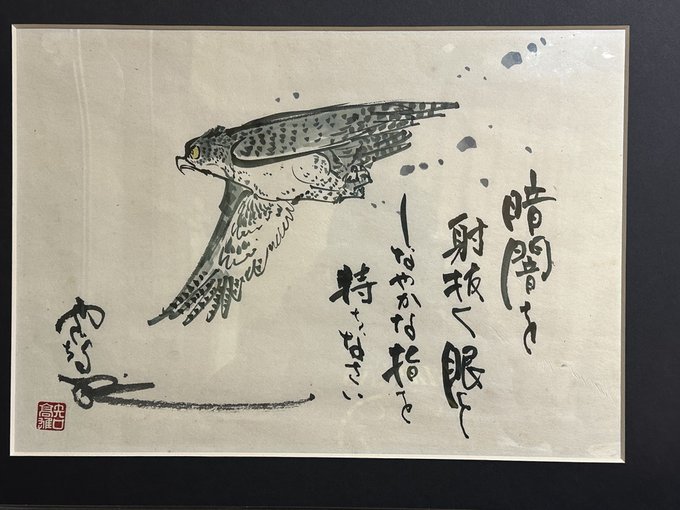 暗闇を
射抜く眼と
しなやかな指を
持ちなさい